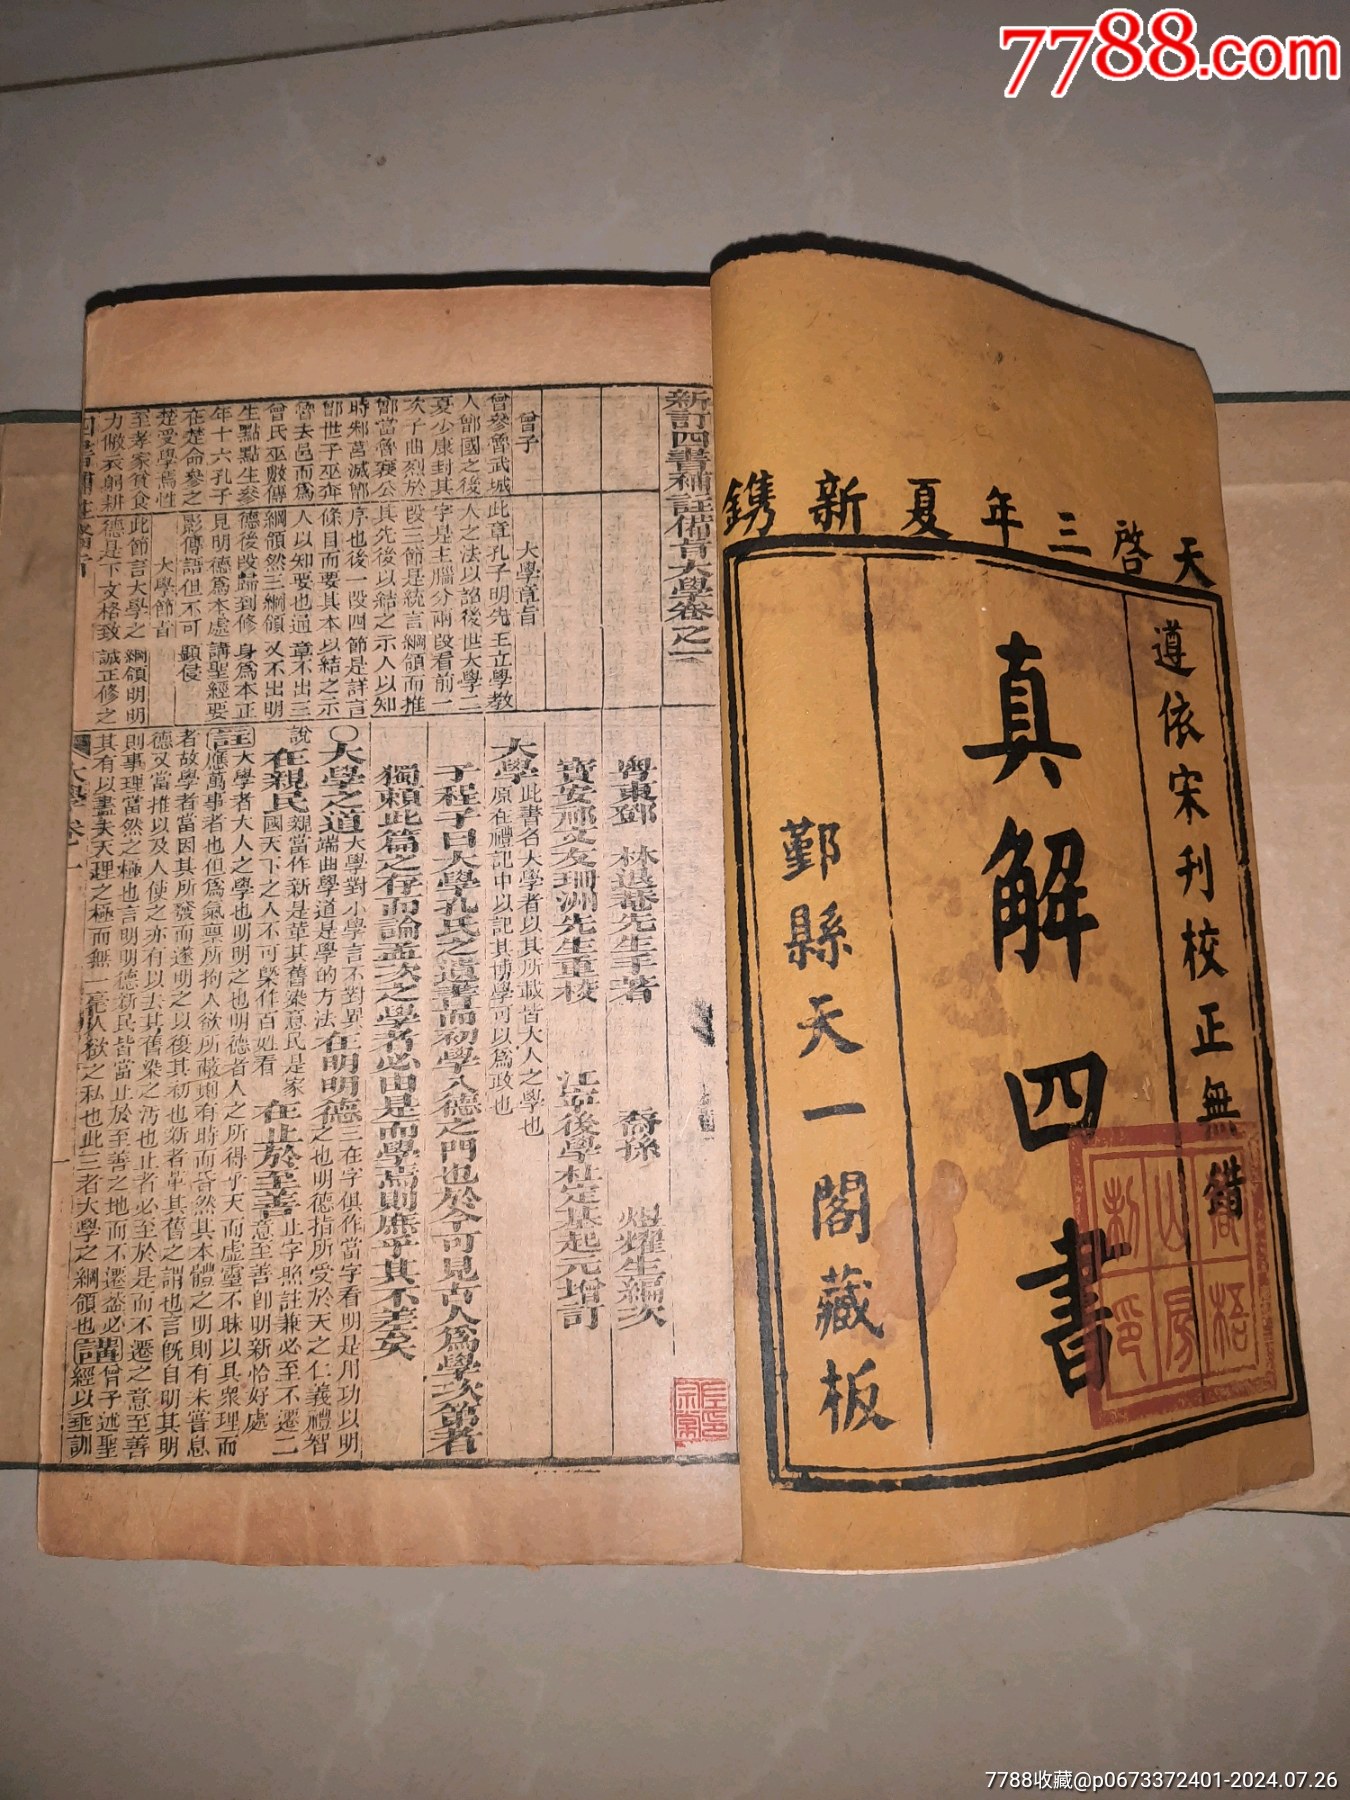 7788.com
天啓三年夏新鐫
遵依宋刊校正無錯
真解四書
鄞縣天一閣藏板
新訂四書補註備旨大學卷之一
粵東鄧 林退菴先生手著
裔孫 煜耀生編次
寶安祁文友珊洲先生重校
江寧後學杜定基起元增訂
大學此書名大學者以其所載皆大人之學也
原在禮記中以記其博學可以為政也
子程子曰大學孔氏之遺書而初學入德之門也於今可見古人為學次第者
獨賴此篇之存而論孟次之學者必由是而學焉則庶乎其不差矣
曾子
曾參魯武城
人鄫國之後
夏少康封其
次子曲烈於
鄫當魯襄公
時邾莒滅鄫
鄫世子巫奔
魯去邑而為
曾氏巫數傳
生點點生參
年十六孔子
在楚命參之
楚受學焉性
至孝家貧食
力傲衣躬耕
大學章旨
此章孔子明先王立學教
人之法以詔後世大學二
字是主腦分兩段看前一
段三節是統言綱領而推
其先後以結之示人以知
序也後一段四節是詳言
條目而要其本以結之示
人以知要也通章不出三
綱領然三綱領又不出明
德後段歸到修身為本正
見明德為本處講聖經要
影傳語但不可顯侵
大學節旨
此節言大學之綱領明明
德是下文格致誠正修之
○大學之道
在明明德
在親民
在止於至善
註大學者大人之學也明明之也明德者人之所得乎天而虛靈不昧以具衆理而
應萬事者也但為氣稟所拘人欲所蔽則有時而昏然其本體之明則有未嘗息
者故學者當因其所發而遂明之以復其初也新者革其舊之謂也言旣自明其明
德又當推以及人使之亦有以去其舊染之汚也止者必至於是而不遷之意至善
則事理當然之極也言明明德新民皆當止於至善之地而不遷蓋必
其有以盡夫天理之極而無一毫人欲之私也此三者大學之綱領也講曾子述聖
經以垂訓
7788收藏@p0673372401-2024.07.26